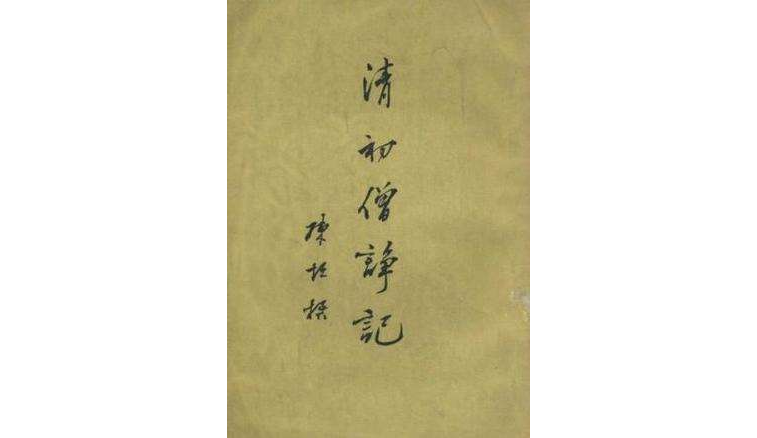 清初僧諍記
陳垣撰